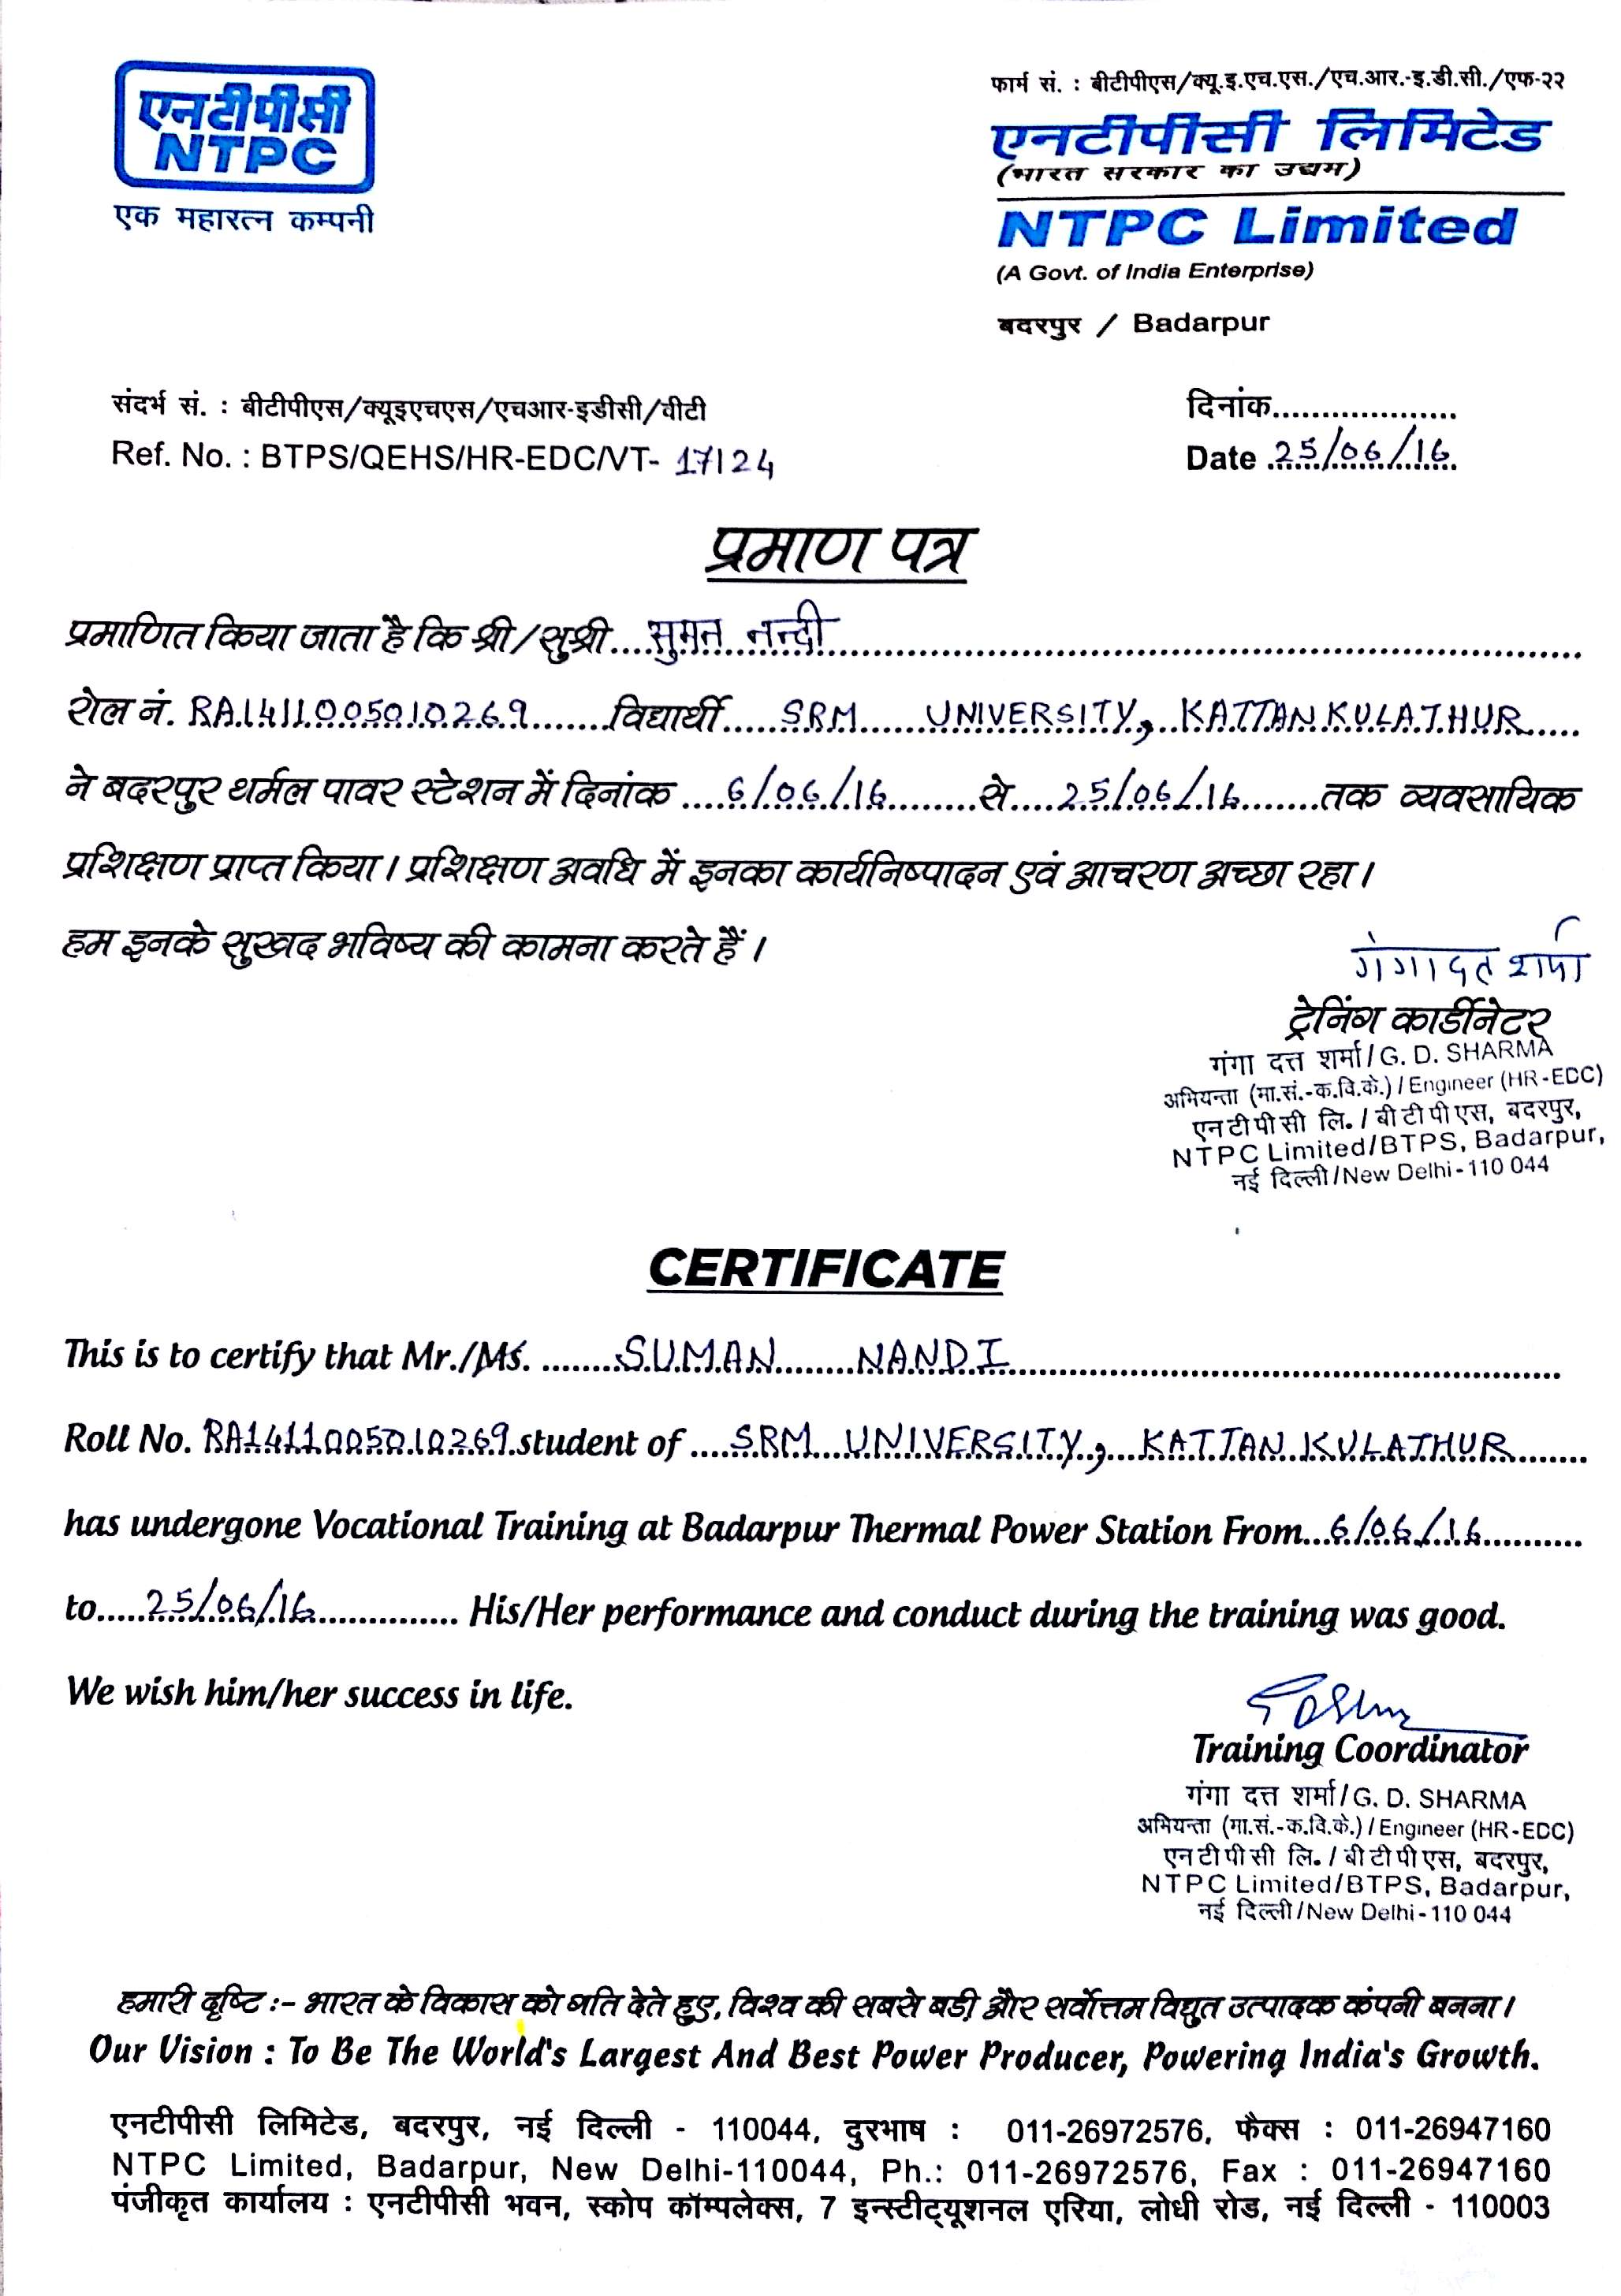 एनटीपीसी
NTPC
एक महारत्न कम्पनी
फार्म सं. : बीटीपीएस/क्यू.इ.एच.एस./एच.आर.-इ.डी.सी./एफ-२२
एनटीपीसी लिमिटेड
(भारत सरकार का उद्यम)
NTPC Limited
(A Govt. of India Enterprise)
बदरपुर / Badarpur
संदर्भ सं. : बीटीपीएस/क्यूइएचएस/एचआर-इडीसी/वीटी
Ref. No. : BTPS/QEHS/HR-EDC/VT- 17124
दिनांक...................
Date 25/06/16
प्रमाण पत्र
प्रमाणित किया जाता है कि श्री/सुश्री....सुमन नन्दी
रोल नं. RA1411005010269 विद्यार्थी SRM UNIVERSITY, KATTANKULATHUR
ने बदरपुर थर्मल पावर स्टेशन में दिनांक ....6/06/16........से....25/06/16.......तक व्यवसायिक
प्रशिक्षण प्राप्त किया। प्रशिक्षण अवधि में इनका कार्यनिष्पादन एवं आचरण अच्छा रहा।
हम इनके सुखद भविष्य की कामना करते हैं ।
गंगा दत्त शर्मा
ट्रेनिंग कार्डीनेटर
गंगा दत्त शर्मा/G. D. SHARMA
अभियन्ता (मा.सं.-क.वि.के.) / Engineer (HR-EDC)
एन टी पी सी लि. / बी टी पी एस, बदरपुर,
NTPC Limited/BTPS, Badarpur,
नई दिल्ली/New Delhi-110 044
CERTIFICATE
This is to certify that Mr./Ms. ........SUMAN NANDI
Roll No. RA1411005010269 student of ....SRM UNIVERSITY, KATTANKULATHUR
has undergone Vocational Training at Badarpur Thermal Power Station From...6/06/16
to.....25/06/16.............. His/Her performance and conduct during the training was good.
We wish him/her success in life.
Training Coordinator
गंगा दत्त शर्मा/G. D. SHARMA
अभियन्ता (मा.सं.-क.वि.के.) / Engineer (HR-EDC)
एन टी पी सी लि. / बी टी पी एस, बदरपुर,
NTPC Limited/BTPS, Badarpur,
नई दिल्ली/New Delhi-110 044
हमारी दृष्टि :- भारत के विकास को गति देते हुए, विश्व की सबसे बड़ी और सर्वोत्तम विद्युत उत्पादक कंपनी बनना।
Our Vision : To Be The World's Largest And Best Power Producer, Powering India's Growth.
एनटीपीसी लिमिटेड, बदरपुर, नई दिल्ली - 110044, दुरभाष : 011-26972576, फैक्स : 011-26947160
NTPC Limited, Badarpur, New Delhi-110044, Ph.: 011-26972576, Fax : 011-26947160
पंजीकृत कार्यालय : एनटीपीसी भवन, स्कोप कॉम्पलेक्स, 7 इन्स्टीट्यूशनल एरिया, लोधी रोड, नई दिल्ली - 110003